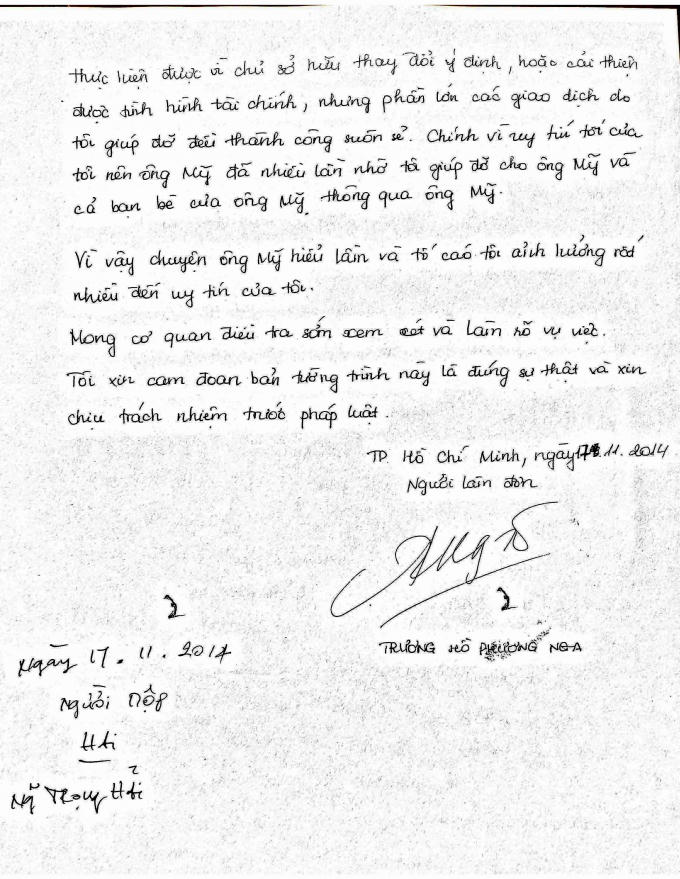 thực hiện được vì chủ sở hữu thay đổi ý định, hoặc cải thiện
được tình hình tài chính, nhưng phần lớn các giao dịch do
tôi giúp đỡ đều thành công suôn sẻ. Chính vì uy tín tốt của
tôi nên ông Mỹ đã nhiều lần nhờ tôi giúp đỡ cho ông Mỹ và
cả bạn bè của ông Mỹ thông qua ông Mỹ.
Vì vậy chuyện ông Mỹ hiểu lầm và tố cáo tôi ảnh hưởng rất
nhiều đến uy tín của tôi.
Mong cơ quan điều tra sớm xem xét và làm rõ vụ việc.
Tôi xin cam đoan bản tường trình này là đúng sự thật và xin
chịu trách nhiệm trước pháp luật.
TP. Hồ Chí Minh, ngày 17.11.2014
Người làm đơn
2
2
TRƯƠNG HỒ PHƯƠNG NGA
Ngày 17.11.2014
Người nộp
Ng Trọng Hải